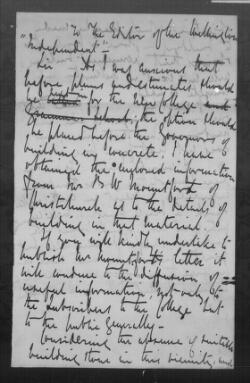 To The Editor of the Wellington
"Independent" -
Sir As I was anxious that
before plans and estimates should
for the New College and
Grammar School, the option should
be placed before the Governors of
building in concrete, I have
obtained the enclosed information
from Mr B W Mountfort of
Christchurch as to the details of
building in that material.
If you will kindly undertake to
publish Mr Mountfort's letter it
will conduce to the diffusion of
useful information, not only to
the subscribers to the College but
to the public generally -
Considering the absence of suitable
building stone in this vicinity, and